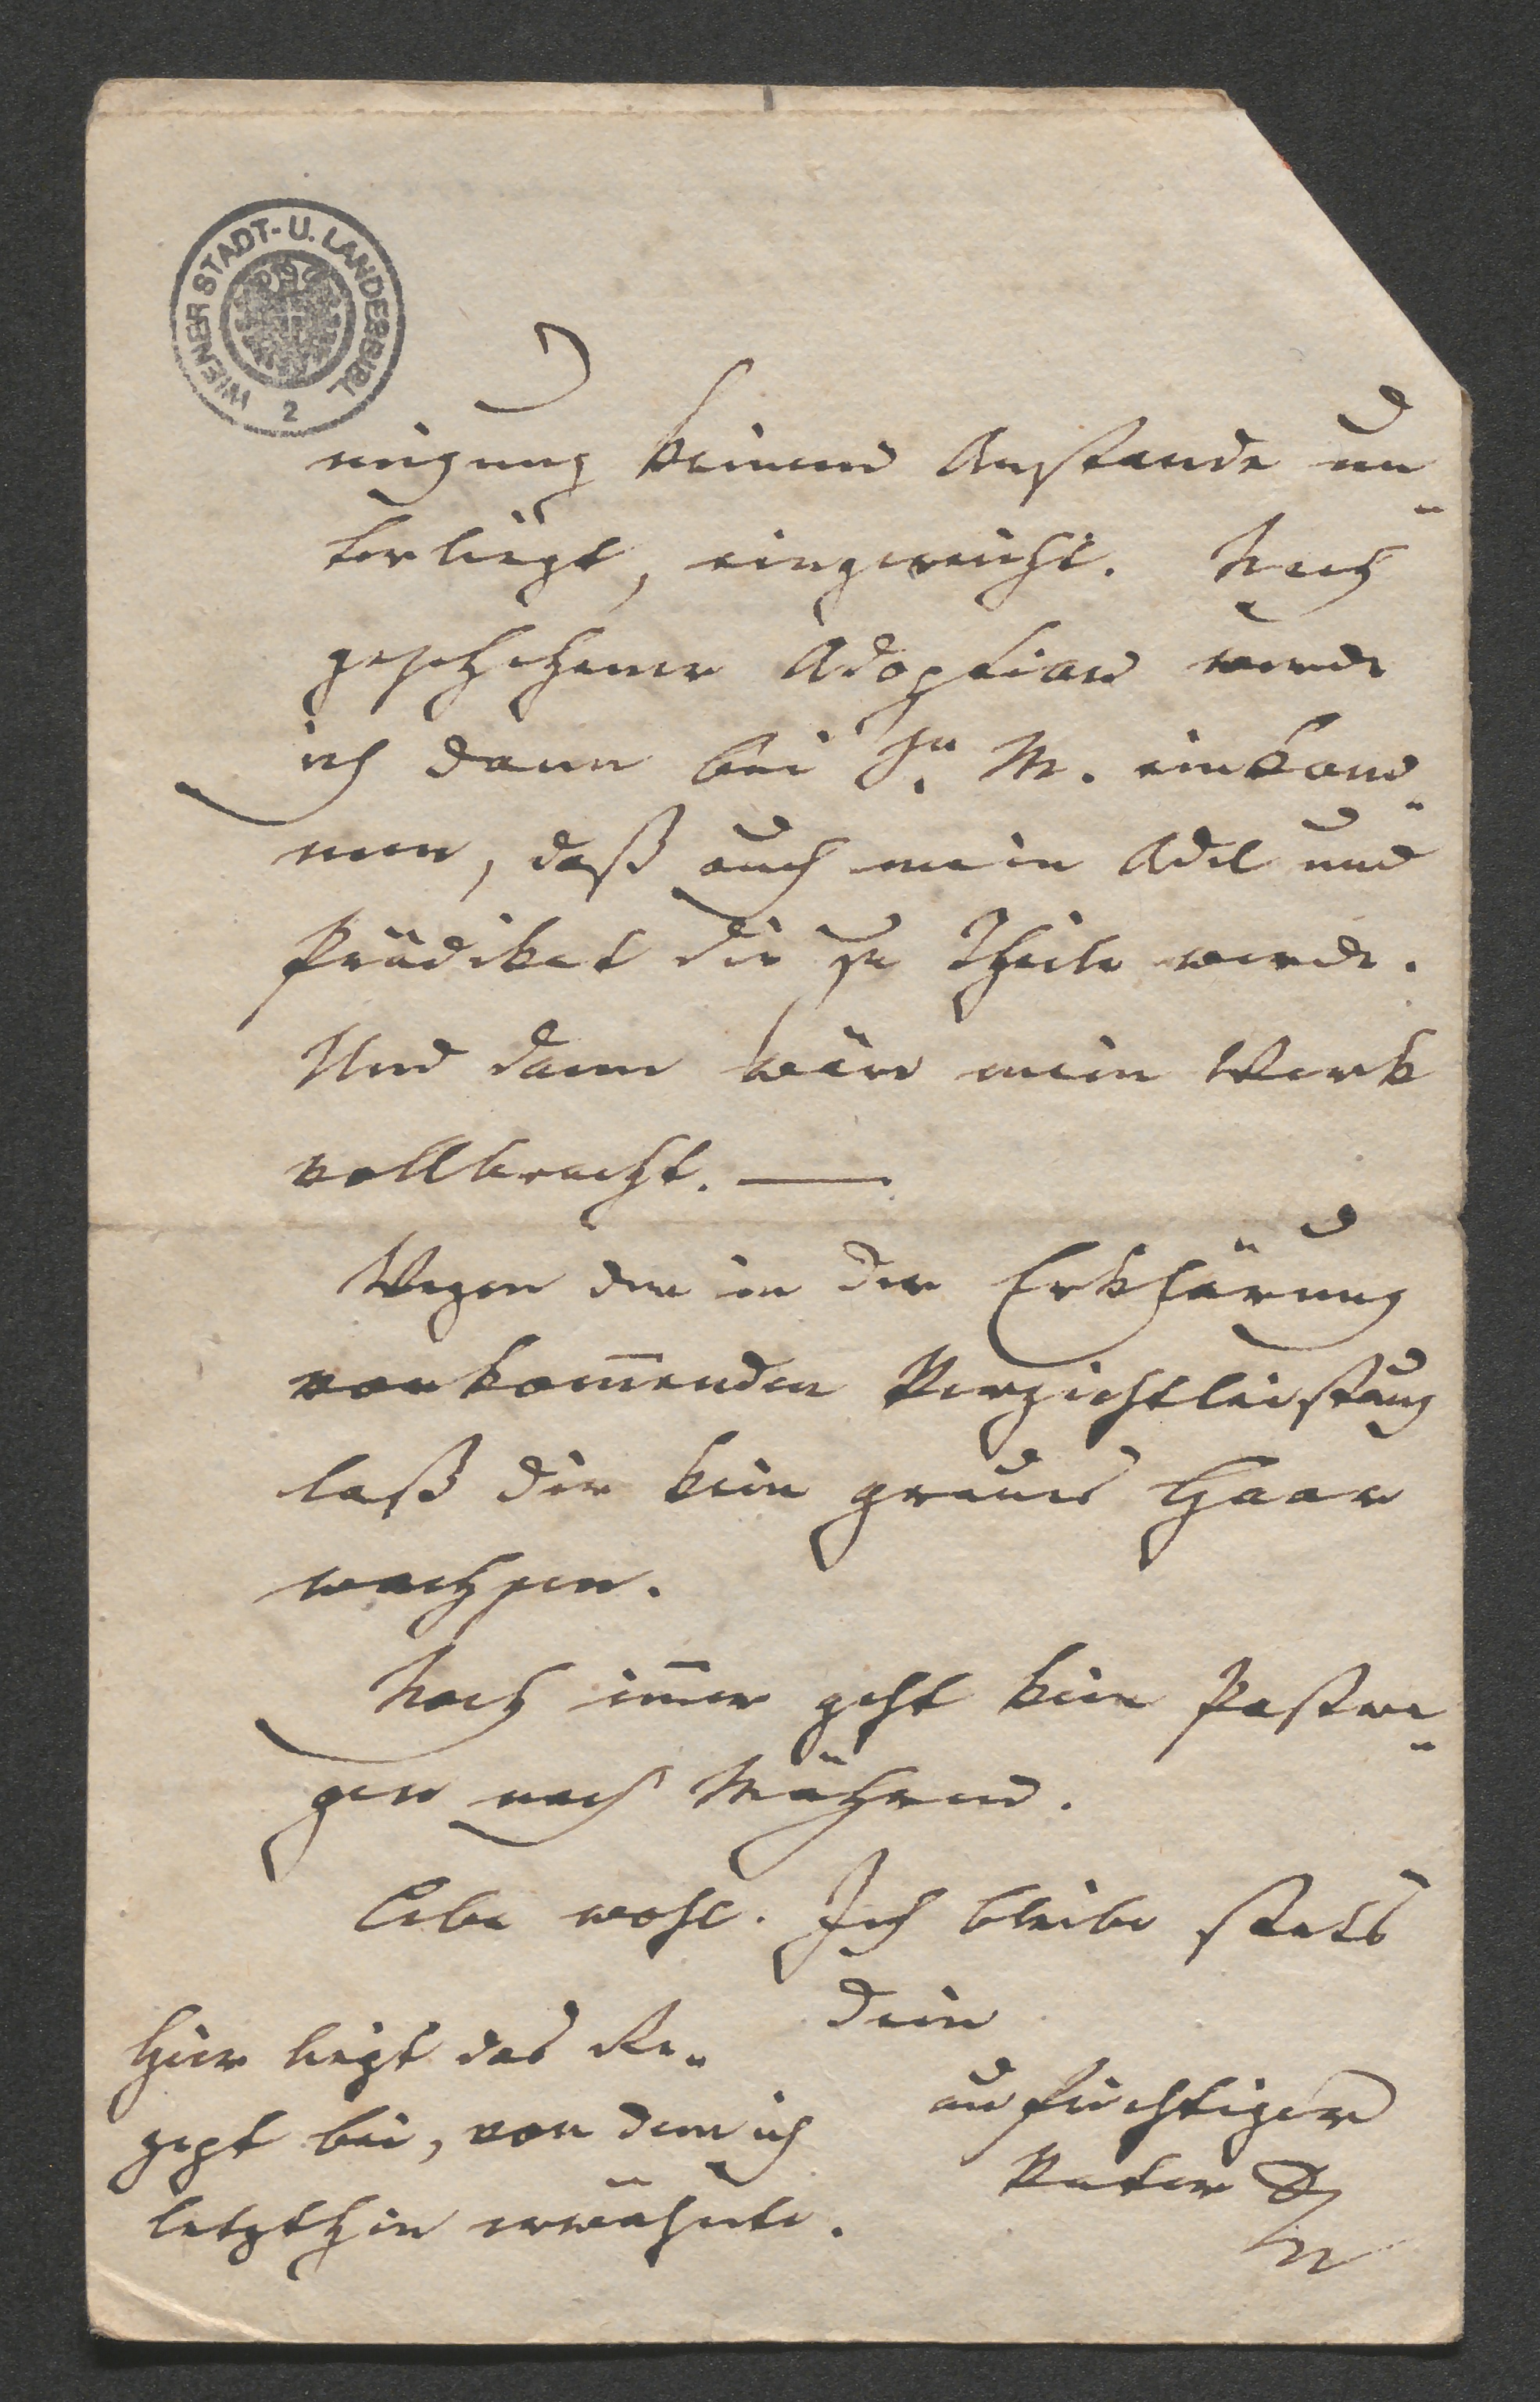 WIENER STADT- U. LANDESBIBL.
2
nigung keinem Anstande un„
terliegt, eingereicht. Nach
geschehener Adoption werde
ich dann bei Sr. M. einkom„
men, daß auch mein Adel und
Prädikat dir zu Theile werde.
Und dann wäre mein Werk
vollbracht. —
Wegen der in der Erklärung
vorkom̅enden Verzichtleistung
laß dir kein graues Haar
wachsen.
Noch im̅er geht kein Postwa„
gen nach Mähren.
Lebe wohl. Ich bleibe stets
Dein
aufrichtiger
Vater
Hier liegt das Re„
zept bei, von dem ich
letzthin erwähnte.